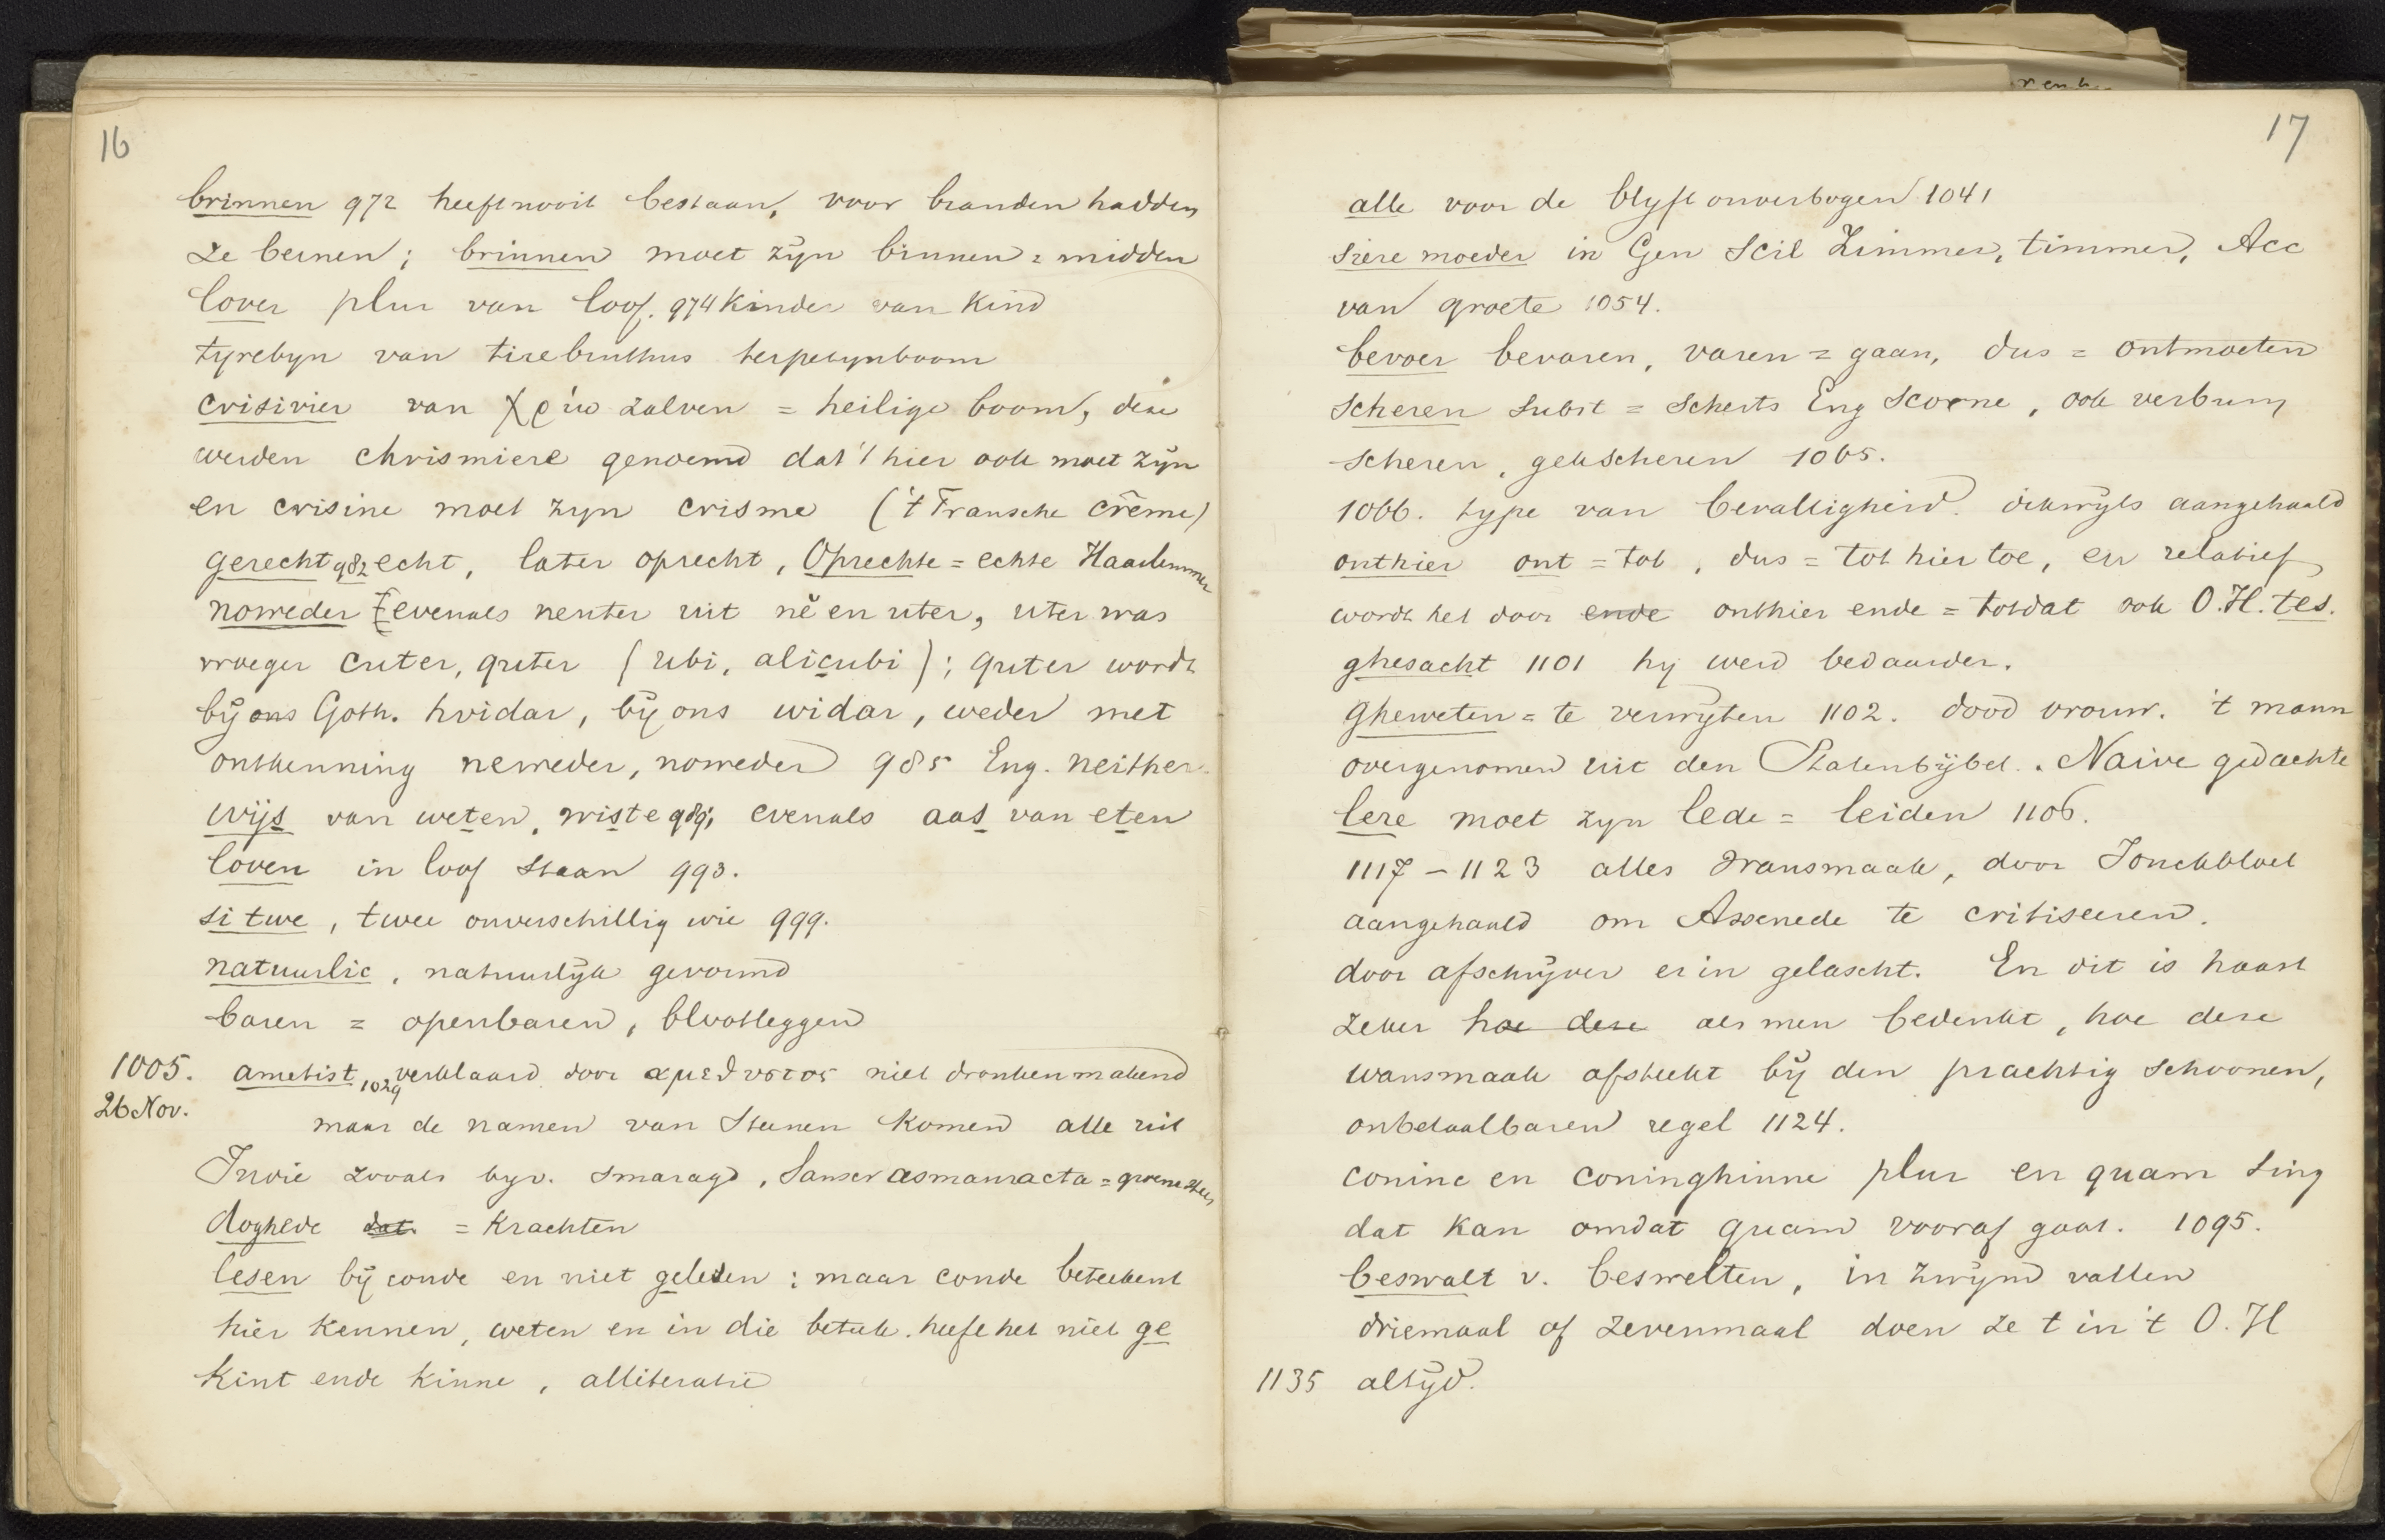 16
brinnen 972 heeft nooit bestaan, voor branden hadden
ze bernen; brinnen moet zijn binnen = midden
lover plur van loof. 974 Kinder van Kind
tyrebyn van tirebinthus terpetynboom
crisivier van χρίω zalven = heilige boom, deze
werden chrismiere genoemd dat 't hier ook moet zijn
en crisine moet zyn crisme ('t Fransche crême)
gerecht 982 echt, later oprecht, Oprechte = echte Haarlemmer
noweder evenals neuter uit nĕ en uter, uter was
vroeger cuter, quter (ubi, alicubi); quter wordt
bij ons Goth. hvidar, bij ons widar, weder met
ontkenning neweder, noweder 985 Eng. neither
wijs van weten, wiste 989; evenals aas van eten
loven in loof staan 993.
si twe, twee onverschillig wie 999.
natuurlic, natuurlijk gevormd
baren = openbaren, blootleggen
1005. ametist 1029 verklaard door αμεθυστος niet dronken makend
26 Nov. maar de namen van steenen komen alle uit
Indie zooals byv. smaragd, Sanscr asmaracta = groene steen
doghede dat = Krachten
lesen bij conde en niet gelesen: maar conde beteekent
hier kennen, weten en in die beteek. heeft het niet ge
Kint ende kinne, alliteratie
17
alle voor de blyft onverbogen 1041
siere moeder in Gen scil Zimmer, timmer, Acc
van groete 1054.
bevoer bevaren, varen = gaan, dus = ontmoeten
scheren subst = scherts Eng scorne, ook verbum
scheren, gekscheren 1065.
1066. type van bevalligheid. dikwijls aangehaald
onthier ont = tot, dus = tot hier toe, en relatief
wordt het door ende onthier ende = totdat ook O.H. tes.
ghesacht 1101 hy werd bedaarder.
Gheweten = te verwijten 1102. dood vrouw. 't mann
overgenomen uit den Statenbijbel. Naive gedachte
lere moet zyn lede = leiden 1106.
1117 – 1123 alles wansmaak, door Jonckbloet
aangehaald om Assenede te critiseeren.
door afschrijver er in gelascht. En dit is haast
zeker hoe deze als men bedenkt, hoe deze
wansmaak afsteekt bij den prachtig schoonen,
onbetaalbaren regel 1124.
coninc en coninghinne plur en quam sing
dat kan omdat quam vooraf gaat. 1095.
beswalt v. beswelten, in zwijm vallen
driemaal of zevenmaal doen ze t in 't O. H
1135 altijd.